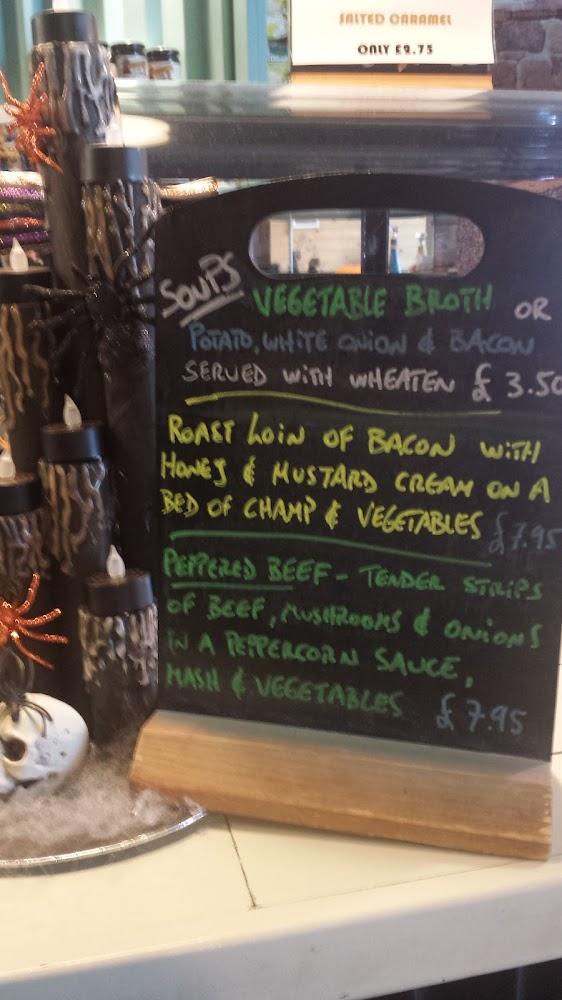 SALTED CARAMEL
ONLY £2.75
SOUPS VEGETABLE BROTH OR
POTATO, WHITE ONION & BACON
SERVED WITH WHEATEN £3.50
ROAST LOIN OF BACON WITH
HONEY & MUSTARD CREAM ON A
BED OF CHAMP & VEGETABLES £7.95
PEPPERED BEEF - TENDER STRIPS
OF BEEF, MUSHROOMS & ONIONS
IN A PEPPERCORN SAUCE,
MASH & VEGETABLES £7.95